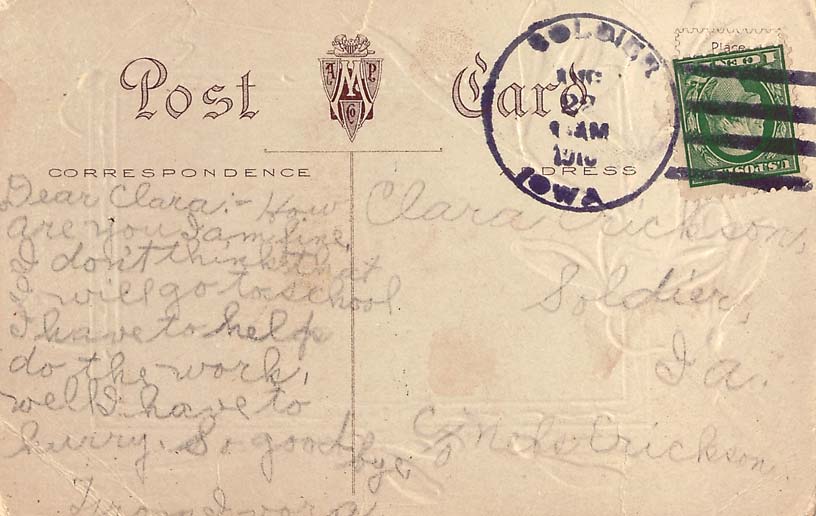 Post Card
A M P
Co
CORRESPONDENCE
ADDRESS
Place
SOLDIER
AUG
22
AM
IOWA
1 CENT 1
U.S. POSTAGE
Dear Clara:- How
are you I am fine,
I don't think that
I will go to school
I have to help
do the work,
well I have to
hurry. So good
bye,
From
Clara Erickson,
Soldier,
Ia.
Nels Erickson